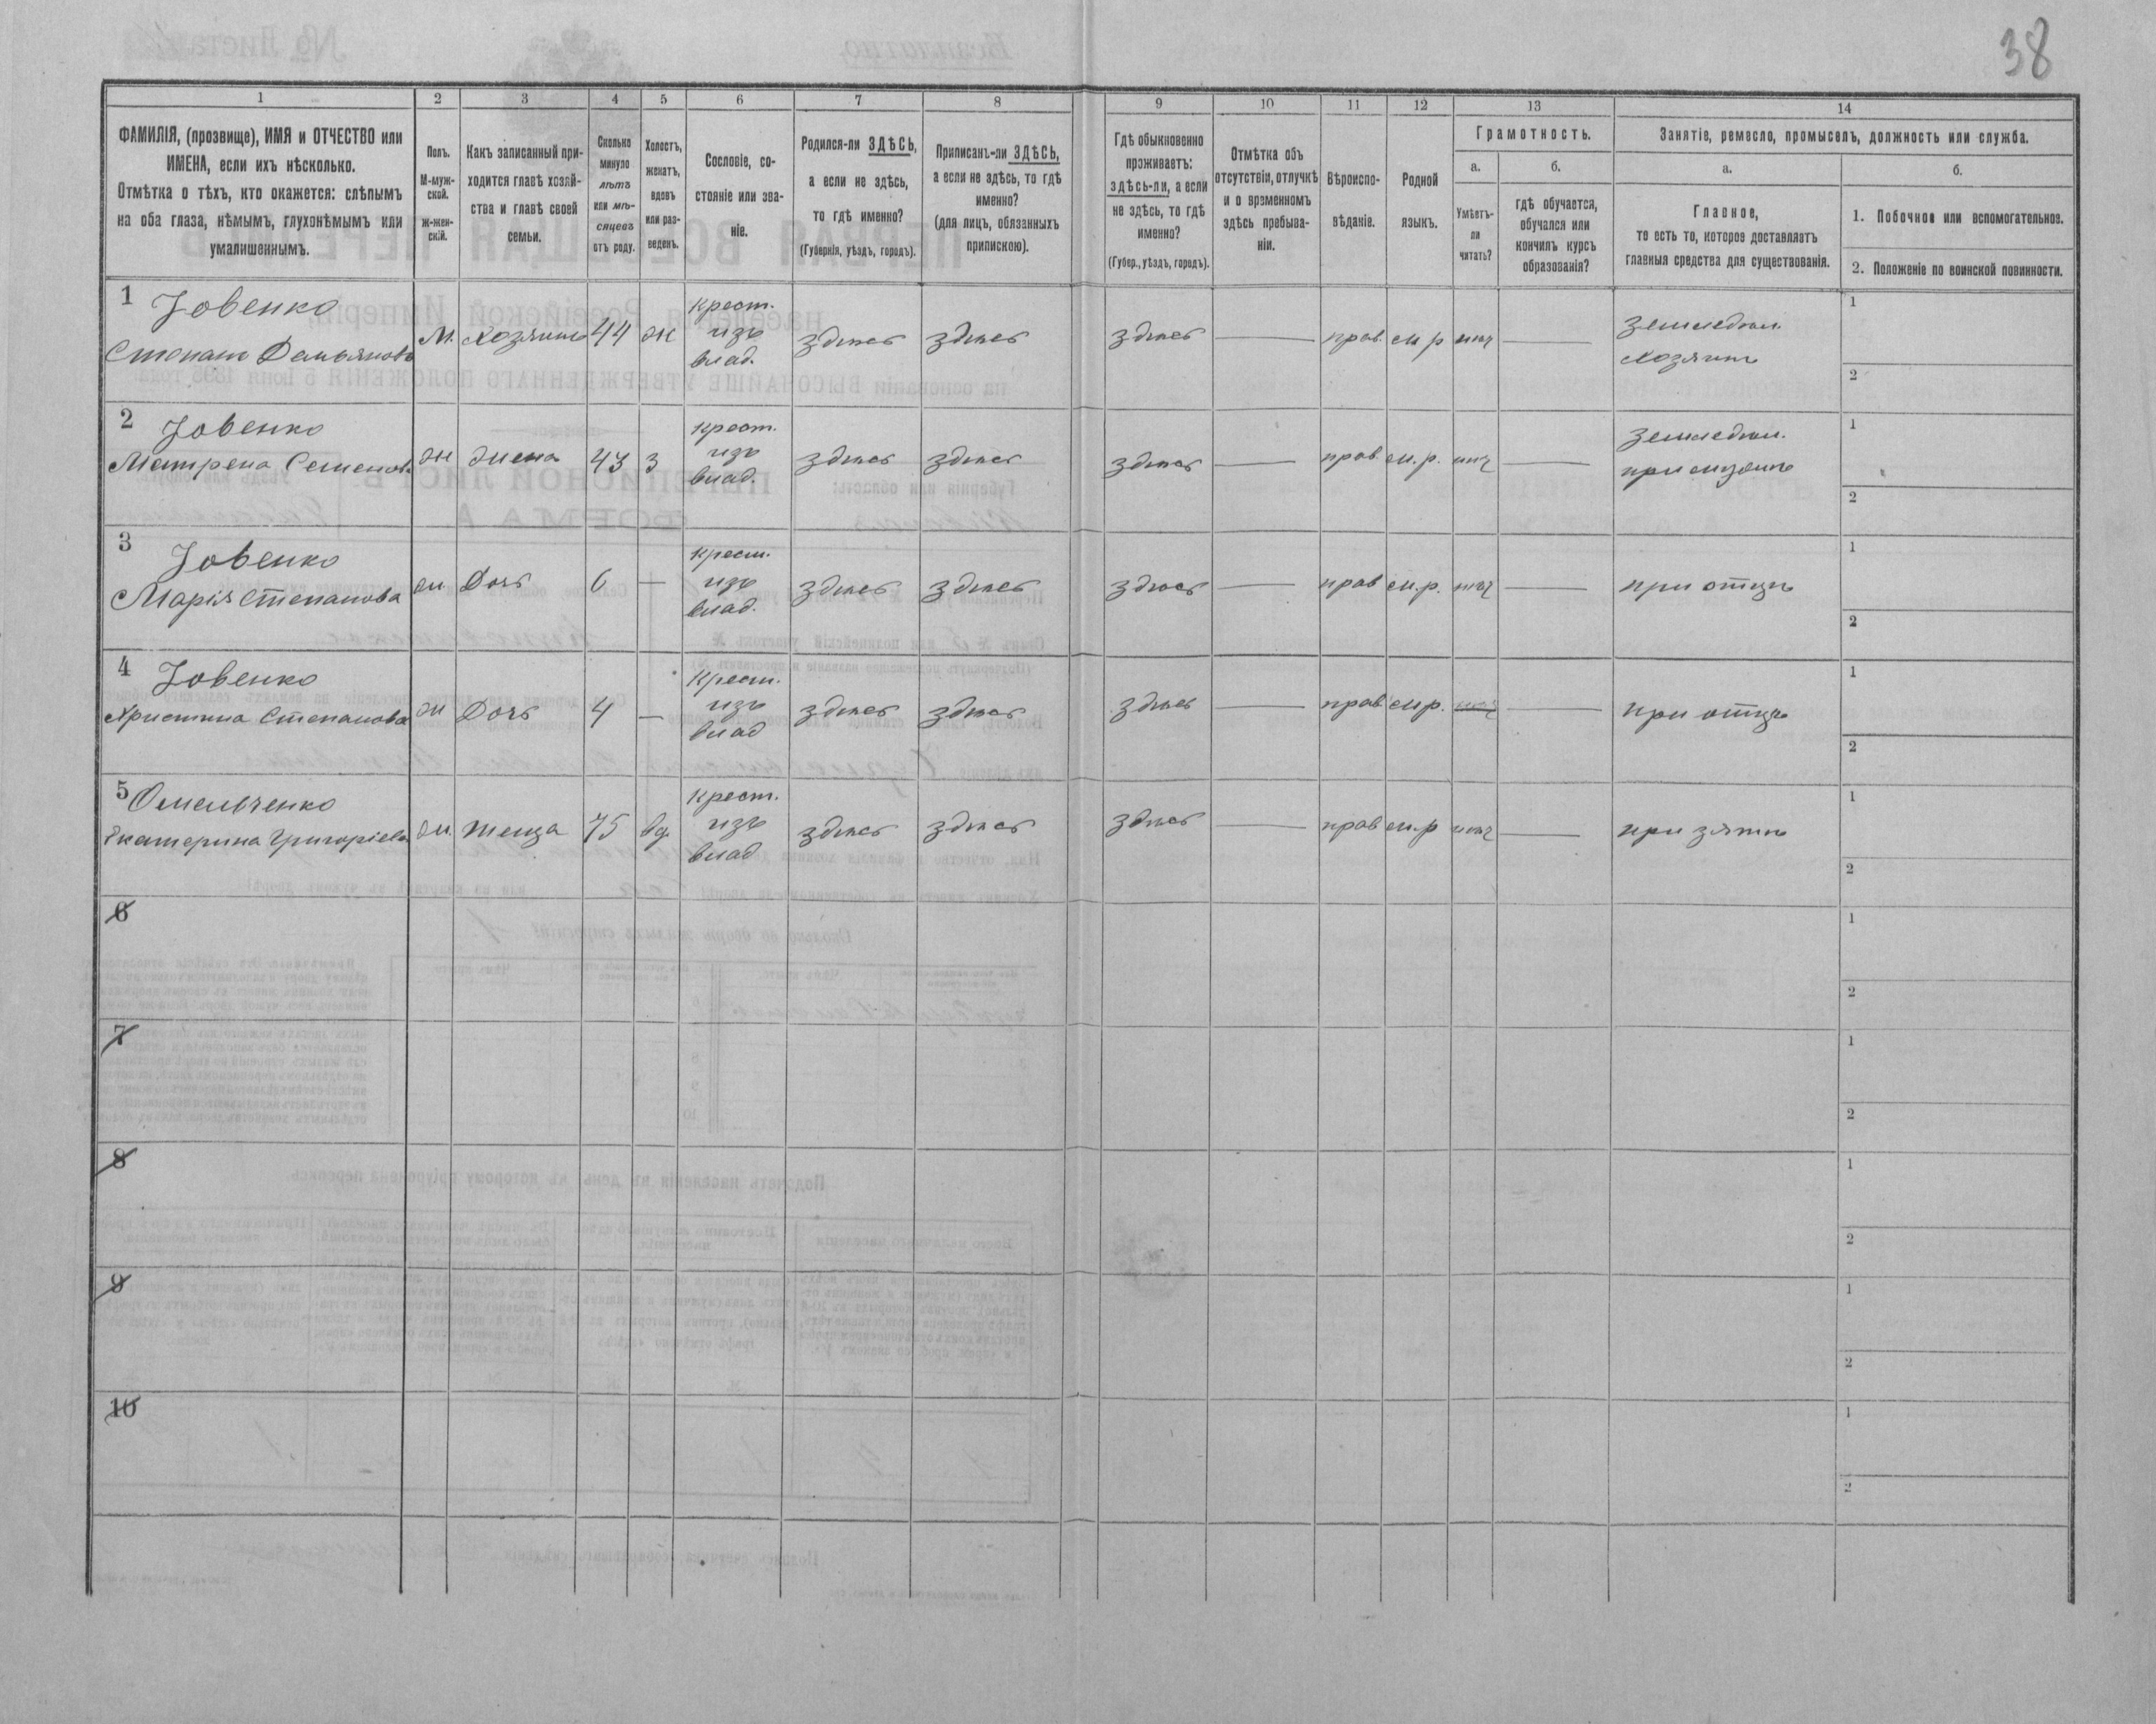 38
1 2 3 4 5 6 7 8 9 10 11 12 13 14
ФАМИЛІЯ, (прозвище), ИМЯ и ОТЧЕСТВО или
ИМЕНА, если ихъ нѣсколько.
Отмѣтка о тѣхъ, кто окажется: слѣпымъ
на оба глаза, нѣмымъ, глухонѣмымъ или
умалишеннымъ.
Полъ.
М-муж-
ской.
ж-жен-
скій.
Какъ записанный при-
ходится главѣ хозяй-
ства и главѣ своей
семьи.
Сколько
минуло
лѣтъ
или мѣ-
сяцевъ
отъ роду.
Холостъ,
женатъ,
вдовъ
или раз-
веденъ.
Сословіе, со-
стояніе или зва-
ніе.
Родился-ли ЗДѢСЬ,
а если не здѣсь,
то гдѣ именно?
(Губернія, уѣздъ, городъ).
Приписанъ-ли ЗДѢСЬ,
а если не здѣсь, то гдѣ
именно?
(для лицъ, обязанныхъ
припискою).
Гдѣ обыкновенно
проживаетъ:
здѣсь-ли, а если
не здѣсь, то гдѣ
именно?
(Губер., уѣздъ, городъ).
Отмѣтка объ
отсутствіи, отлучкѣ
и о временномъ
здѣсь пребыва-
ніи.
Вѣроиспо-
вѣданіе.
Родной
языкъ.
Грамотность.
а.
Умѣетъ-
ли
читать?
б.
гдѣ обучается,
обучался или
кончилъ курсъ
образованія?
Занятіе, ремесло, промыселъ, должность или служба.
а.
Главное,
то есть то, которое доставляетъ
главныя средства для существованія.
б.
1. Побочное или вспомогательное.
2. Положеніе по воинской повинности.
1 Зовенко
Степанъ Демьяновъ
М. Хозяинъ 44 ж
крест.
изъ
влад.
здѣсь здѣсь здѣсь — прав. м.р нѣт —
земледѣл.
хозяинъ
1
2
2 Зовенко
Матрена Семенова
ж жена 43 з
крест.
изъ
влад.
здѣсь здѣсь здѣсь — прав. м.р. нѣт —
земледѣл.
при мужѣ
1
2
3 Зовенко
Марія Степанова
ж. Дочь 6 —
крест.
изъ
влад.
здѣсь здѣсь здѣсь — прав м.р. нѣт —
при отцѣ
1
2
4 Зовенко
Христина Степанова
ж Дочь 4 —
крест.
изъ
влад
здѣсь здѣсь здѣсь — прав. м.р. нѣт —
при отцѣ
1
2
5 Омельченко
Екатерина Григоріева
ж. теща 75 вд.
крест.
изъ
влад
здѣсь здѣсь здѣсь — прав м.р нѣт —
при зятѣ
1
2
6
1
2
7
1
2
8
1
2
9
1
2
10
1
2